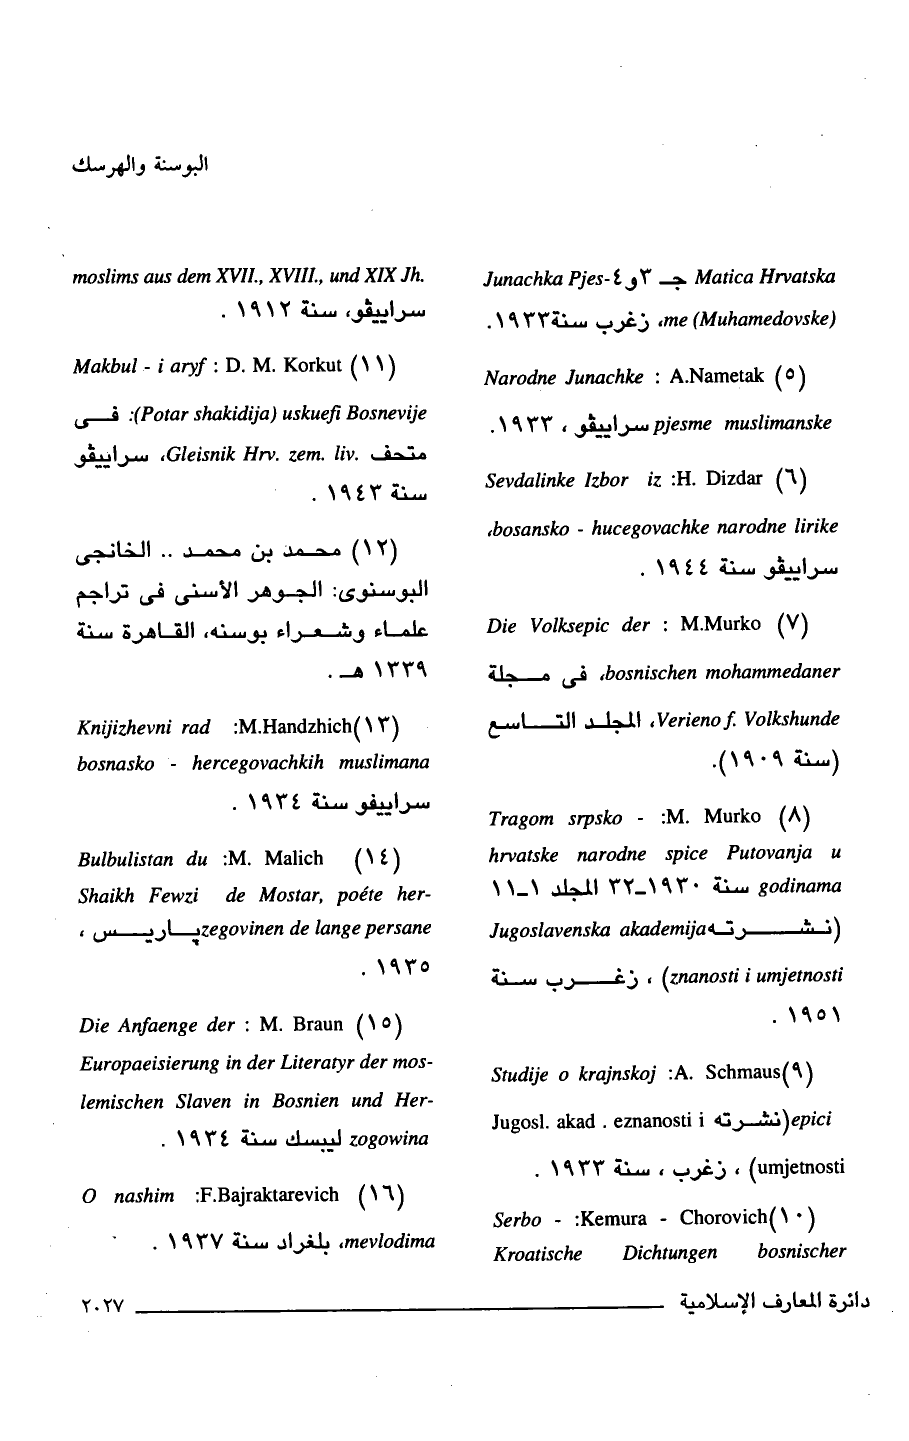 البوسنة والهرسك
Matica Hrvatska جـ ٣و٤ Junachka Pjes-
me (Muhamedovske)، زغرب سنة١٩٣٣.
(٥) A.Nametak : Narodne Junachke
pjesme muslimanske سراييڤو ، ١٩٣٣.
(٦) H. Dizdar: Sevdalinke Izbor iz
bosansko - hucegovachke narodne lirike،
سراييڤو سنة ١٩٤٤ .
(٧) M.Murko : Die Volksepic der
bosnischen mohammedaner، فى مـجلة
Verieno f. Volkshunde، المجلد التاسع
(سنة ١٩٠٩).
(٨) M. Murko: Tragom srpsko -
hrvatske narodne spice Putovanja u
godinama سنة ١٩٣٠_٣٢ المجلد ١_١١
(نشرته Jugoslavenska akademija
znanosti i umjetnosti) ، زغرب سنة
١٩٥١ .
(٩)A. Schmaus: Studije o krajnskoj
epici(نشرته Jugosl. akad . eznanosti i
umjetnosti) ، زغرب ، سنة ١٩٣٣ .
(١٠)Kemura - Chorovich: Serbo -
Kroatische Dichtungen bosnischer
moslims aus dem XVII., XVIII., und XIX Jh.
سراييڤو، سنة ١٩١٢ .
(١١) D. M. Korkut : Makbul - i aryf
(Potar shakidija) uskuefi Bosnevije: فى
متحف Gleisnik Hrv. zem. liv.، سراييڤو
سنة ١٩٤٣ .
(١٢) محمد بن محمد .. الخانجى
البوسنوى: الجوهر الأسنى فى تراجم
علماء وشعراء بوسنه، القاهرة سنة
١٣٣٩ هـ .
(١٣)M.Handzhich: Knijizhevni rad
bosnasko - hercegovachkih muslimana
سراييفو سنة ١٩٣٤ .
(١٤) M. Malich: Bulbulistan du
Shaikh Fewzi de Mostar, poéte her-
zegovinen de lange persane پاريس ،
١٩٣٥ .
(١٥) M. Braun : Die Anfaenge der
Europaeisierung in der Literatyr der mos-
lemischen Slaven in Bosnien und Her-
zogowina ليبسك سنة ١٩٣٤ .
(١٦) F.Bajraktarevich: O nashim
mevlodima، بلغراد سنة ١٩٣٧ .
دائرة المعارف الإسلامية ٢٠٢٧